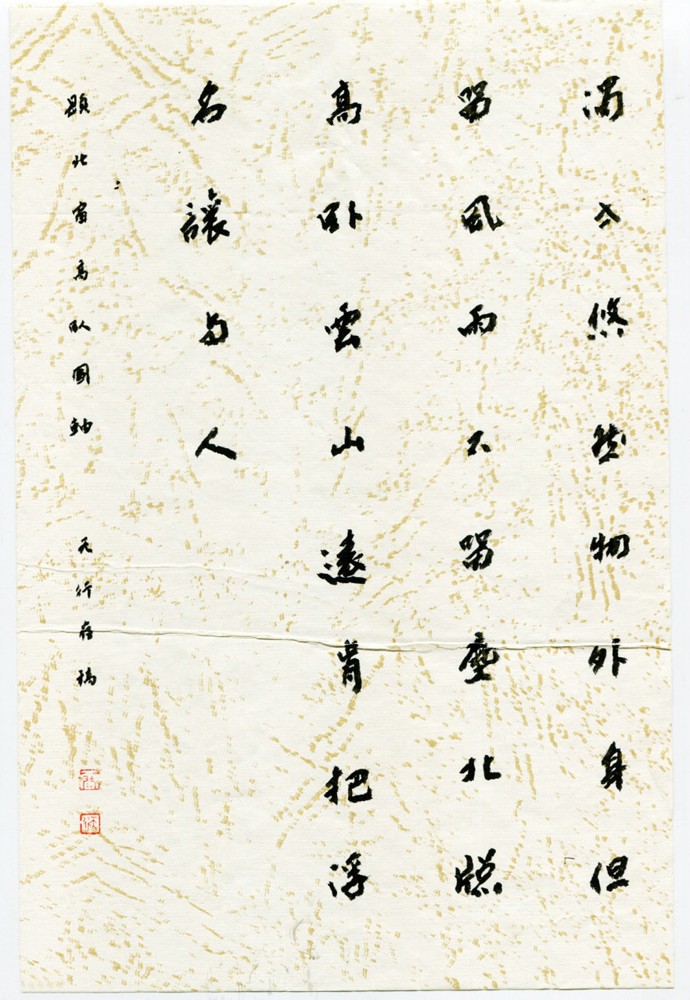 悠然物外身但
留風雨不留塵北牕
高卧雲山遠肯把浮
名讓與人
題北窗高臥圖軸 行存稿